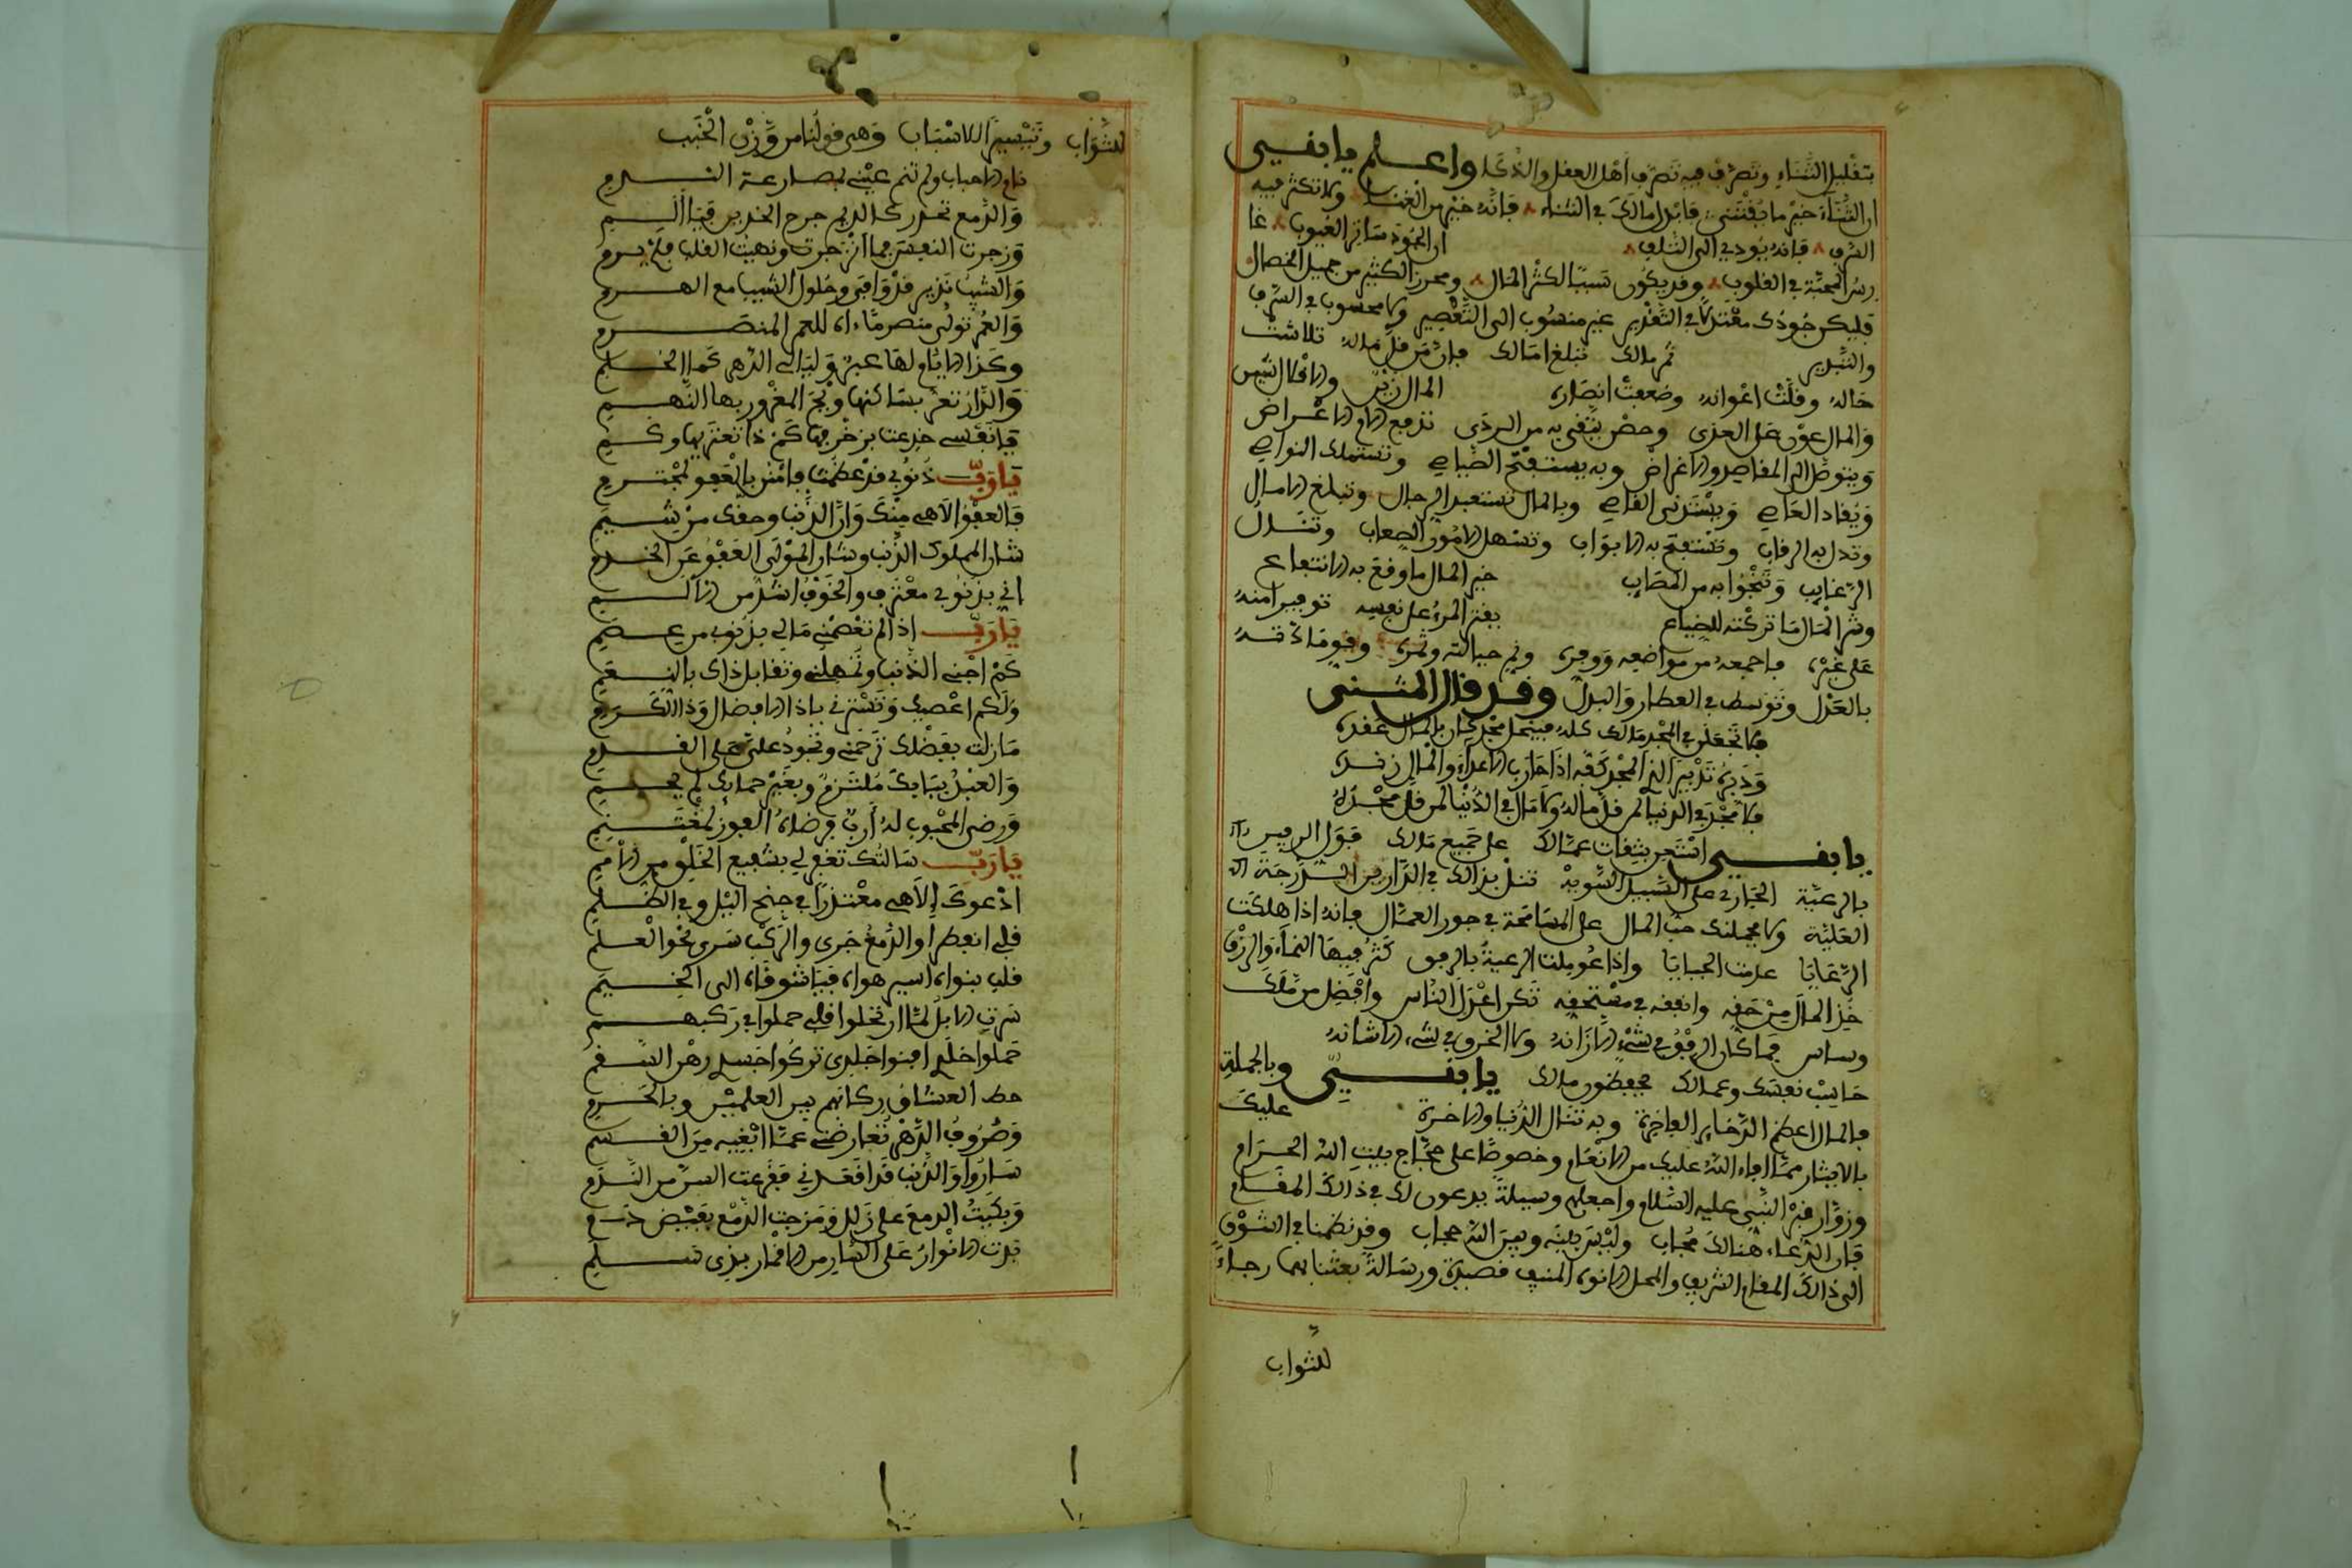 بتقليل الثناء وتصرف فيه تصرف أهل العقل والذكا واعلم يا بني
ان الثناء خير ما يقتنى فابذل مالك في الثناء فإنه خير من الغنا ولا تكثر فيه
السرف فانه يودي الى التلف ان الجود ساتر العيوب غا
رس المحبة في القلوب وقد يكون سببا لكثر المال ومحرز الكثير من جميل الخصال
فليكن جودك معتدلا في التقدير غير منسوب الى التقصير ولا محسوب في السرف
والتبذير ثمر مالك تبلغ امالك فان من قل ماله تلاشت
حاله وقلت اعوانه وضعفت انصاره المال زين والاقلال شين
والمال عون على العدى وحصن يتقى به من الردى تدفع به الاعراض
ويتوصل الى المقاصد والاغراض وبه يستفتح الصياصي وتستملك النواصي
ويقاد العاصي ويستدنى القاصي وبالمال تستعبد الرجال وتبلغ الامال
وتذل به الرقاب وتستفتح به الابواب وتسهل الامور الصعاب وتنال
الرغايب وتنجوا به من المصايب خير المال ما وقع به الانتفاع
وشر المال ما تركته للضياع يقتر المرء على نفسه توفيرا منه
على غيره فاجمعه من مواضعه ووفره ونم جبالته وثمره
بالعدل وتوسط في العطا والبذل وقد قال المتنبي
فلا تجعلن في المجد مالك كله فينحل مجد كان بالمال عقده
ودبره تدبير الذي المجد كفه اذا حارب الاعداء والمال زنده
فلا مجد في الدنيا لمن قل ماله ولا مال في الدنيا لمن قل مجده
يا بني استعن بثقات عمالك على جميع مالك
بالرعية الجاري على السبيل السوية تنل بذالك في الدارين الدرجة
العلية ولا يحملنك حب المال على المسامحة في جور العمال فانه اذا هلكت
الرعايا عدمت الجبايا واذا عوملت الرعية بالرفق كثر فيها النماء والرزق
خذ المال من حقه وانفقه في مستحقه تكن اعدل الناس وافضل من ملك
وساس فما كان الرفق في شيء الا زانه ولا الخرق في شيء الا شانه
حاسب نفسك وعمالك تحفظ مالك يا بني وبالجملة
فالمال اعظم الذخاير الفاخرة وبه تنال الدنيا والاخرة عليك
بالايثار مما افاء الله عليك من الانعام وخصوصا على حجاج بيت الله الحرام
وزوار قبر النبي عليه السلام واجعلهم وسيلة يدعون لك في ذالك المقام
فان الدعاء هنالك مجاب وليس بينه وبين الله حجاب وقد نظمنا في الشوق
الى ذالك المقام الشريف والمحل الانوه المنيف قصيدة ورسالة بعثنا بهما رجاء
للثواب
للثواب وتيسير الاسباب وهي قولنا من وزن الخبب
نام الاحباب ولم تنم عيني بمصارعة الندم
والدمع تحدر كالديم جرح الخدين فيا ألمي
وزجرت النفس فما انزجرت ونهيت القلب فلم يرم
والشيب نذير قد وافى وحلول الشيب مع الهرم
والعمر تولى منصرما اه للعمر المنصرم
وكذا الايام لها عبر وليالي الدهر كما الحلم
والدار تغر بساكنها ويح المغرور بها النهم
يا نفسي خدعت بزخرفها كم ذا تغتر بها وكم
يا رب ذنوبي قد عظمت فامنن بالعفو لمجترم
فالعفو الاهي منك وان الذنب وحقك من شيمي
شان المملوك الذنب وشان المولى العفو عن الخدم
اني بذنوبي معترف والخوف اشد من الالم
يا رب اذا لم تعصمني ما لي بذنوب من عصم
كم اجني الذنب وتمهلني وتقابل ذاك بالنعم
ولكم اعصيك وتسترني يا ذا الافضال وذا الكرم
ما زلت بفضلك ترحمني وتجود علي على القدم
والعبد ببابك ملتزم وبغير حماك لم يحم
ورضى المحبوب له أرب فرضاه الفوز لمغتنم
يا رب سالتك تغفر لي بشفيع الخلق من الامم
ادعوك إلاهي معتذرا في جنح اليل وفي الظلم
قلبي انفطرا والدمع جرى والركب سرى نحو العلم
قلب بنواه اسير هواه فيا شوقاه الى الخيم
سرت الابل لما ارتحلوا قلبي حملوا في ركبهم
حملوا خلدي افنوا جلدي تركوا جسدي رهن السقم
حط العشاق ركابهم بين العلمين وبالحرم
وصروف الدهر تعارضني عما ابغيه من القسم
ساروا والذنب قد اقعدني فقرعت السن من الندم
وبكيت الدمع على زللي ومزجت الدمع بفيض دم
بدت الانوار على الساري من الاقمار بذي سلم